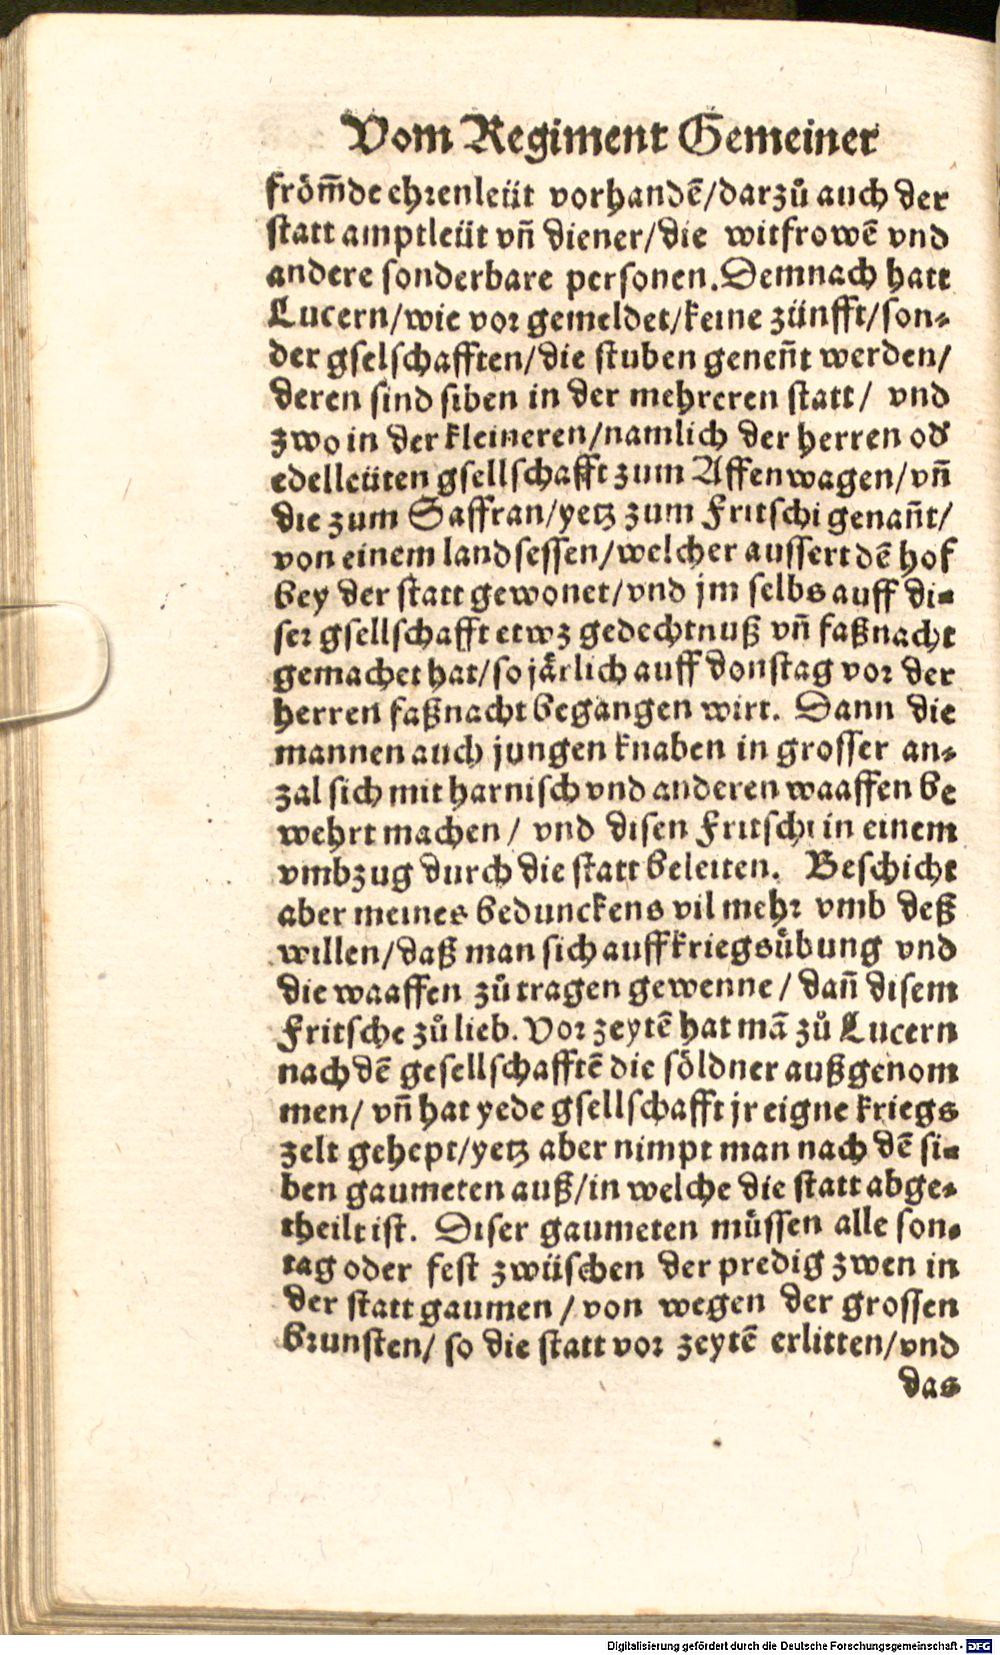 Vom Regiment Gemeiner
fröm̄de ehrenleüt vorhandẽ/darzů auch der
statt amptleüt vñ diener/die witfrowẽ vnd
andere sonderbare personen. Demnach hatt
Lucern/wie vor gemeldet/keine zünfft/son-
der gselschafften/die stuben geneñt werden/
deren sind siben in der mehreren statt/ vnd
zwo in der kleineren/namlich der herren od'
edelleüten gsellschafft zum Affenwagen/vñ
die zum Saffran/yetz zum Fritschi genañt/
von einem landsessen/welcher aussert dẽ hof
bey der statt gewonet/vnd jm selbs auff di-
ser gsellschafft etwz gedechtnuß vñ faßnacht
gemachet hat/so järlich auff donstag vor der
herren faßnacht begangen wirt. Dann die
mannen auch jungen knaben in grosser an-
zal sich mit harnisch vnd anderen waaffen be
wehrt machen/ vnd disen Fritschi in einem
vmbzug durch die statt beleiten. Beschicht
aber meines bedunckens vil mehr vmb deß
willen/daß man sich auff kriegsübung vnd
die waaffen zů tragen gewenne/ dañ disem
Fritsche zů lieb. Vor zeytẽ hat mã zů Lucern
nach dẽ gesellschafftẽ die söldner außgenom
men/ vñ hat yede gsellschafft jr eigne kriegs
zelt gehept/yetz aber nimpt man nach dẽ si-
ben gaumeten auß/in welche die statt abge-
theilt ist. Diser gaumeten müssen alle son-
tag oder fest zwüschen der predig zwen in
der statt gaumen/von wegen der grossen
brunsten/ so die statt vor zeytẽ erlitten/vnd
das
Digitalisierung gefördert durch die Deutsche Forschungsgemeinschaft - DFG